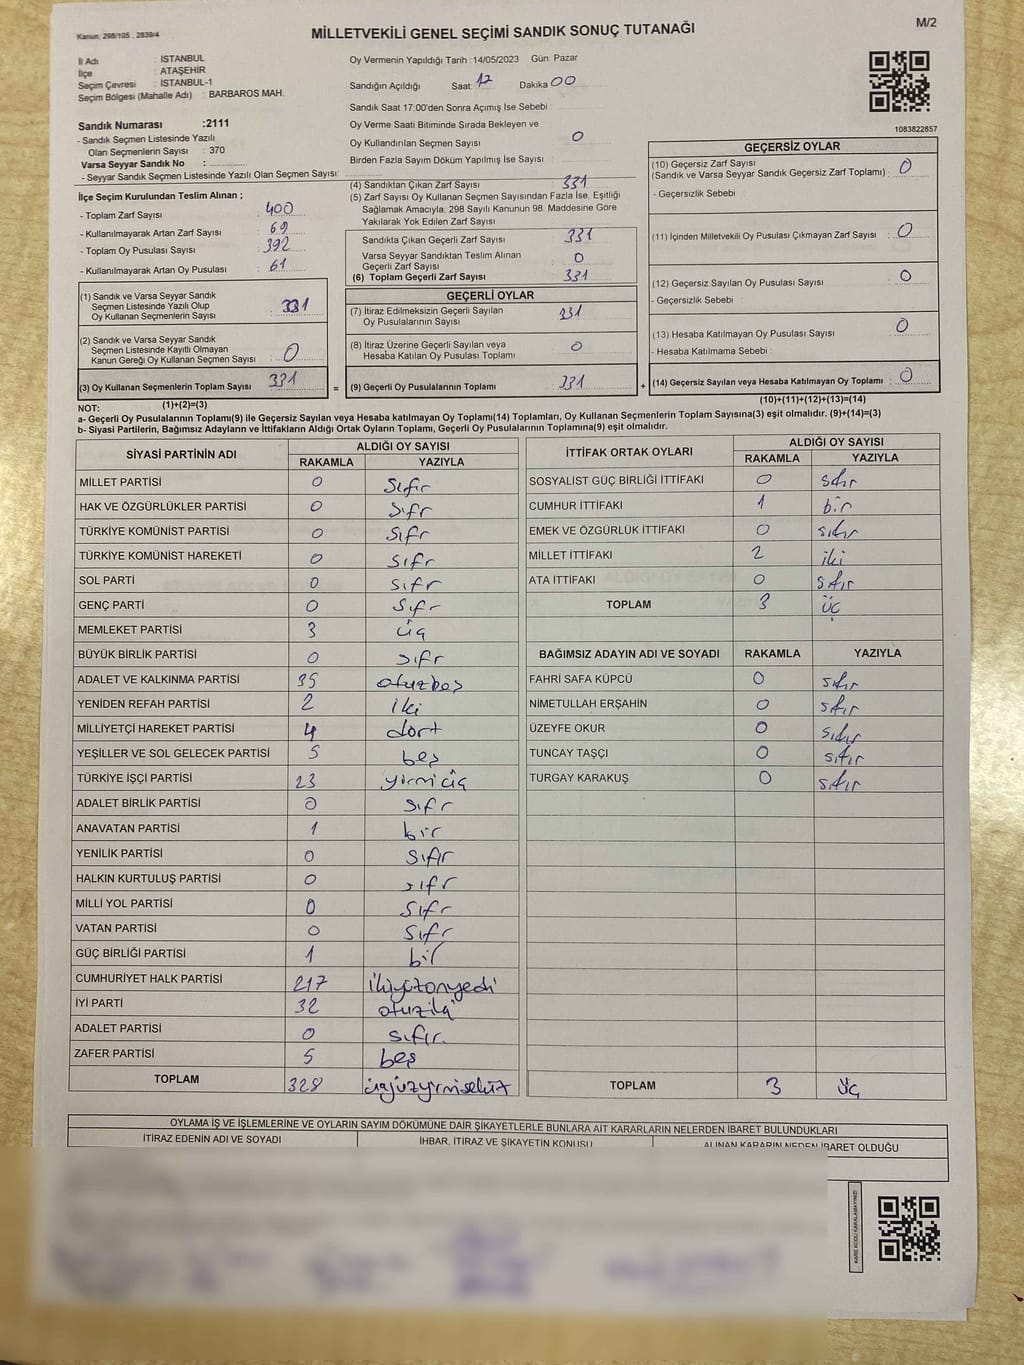 Kanun; 298/105 , 2839/4
MİLLETVEKİLİ GENEL SEÇİMİ SANDIK SONUÇ TUTANAĞI
M/2
İl Adı : İSTANBUL
İlçe : ATAŞEHİR
Seçim Çevresi : İSTANBUL-1
Seçim Bölgesi (Mahalle Adı) : BARBAROS MAH.
Oy Vermenin Yapıldığı Tarih :14/05/2023 Gün: Pazar
Sandığın Açıldığı Saat: 17 Dakika 00
Sandık Saat 17:00'den Sonra Açımış İse Sebebi :
Oy Verme Saati Bitiminde Sırada Bekleyen ve
Oy Kullandırılan Seçmen Sayısı : 0
Birden Fazla Sayım Döküm Yapılmış İse Sayısı
1083822857
Sandık Numarası :2111
- Sandık Seçmen Listesinde Yazılı
Olan Seçmenlerin Sayısı : 370
Varsa Seyyar Sandık No :
- Seyyar Sandık Seçmen Listesinde Yazılı Olan Seçmen Sayısı:
İlçe Seçim Kurulundan Teslim Alınan ;
- Toplam Zarf Sayısı : 400
- Kullanılmayarak Artan Zarf Sayısı : 69
- Toplam Oy Pusulası Sayısı : 392
- Kullanılmayarak Artan Oy Pusulası : 61
(1) Sandık ve Varsa Seyyar Sandık
Seçmen Listesinde Yazılı Olup
Oy Kullanan Seçmenlerin Sayısı : 331
(2) Sandık ve Varsa Seyyar Sandık
Seçmen Listesinde Kayıtlı Olmayan
Kanun Gereği Oy Kullanan Seçmen Sayısı : 0
(3) Oy Kullanan Seçmenlerin Toplam Sayısı : 331
(1)+(2)=(3)
(4) Sandıktan Çıkan Zarf Sayısı : 331
(5) Zarf Sayısı Oy Kullanan Seçmen Sayısından Fazla İse, Eşitliği
Sağlamak Amacıyla; 298 Sayılı Kanunun 98. Maddesine Göre
Yakılarak Yok Edilen Zarf Sayısı :
Sandıkta Çıkan Geçerli Zarf Sayısı : 331
Varsa Seyyar Sandıktan Teslim Alınan
Geçerli Zarf Sayısı : 0
(6) Toplam Geçerli Zarf Sayısı : 331
GEÇERLİ OYLAR
(7) İtiraz Edilmeksizin Geçerli Sayılan
Oy Pusulalarının Sayısı : 331
(8) İtiraz Üzerine Geçerli Sayılan veya
Hesaba Katılan Oy Pusulası Toplamı : 0
= (9) Geçerli Oy Pusulalarının Toplamı : 331
GEÇERSİZ OYLAR
(10) Geçersiz Zarf Sayısı : 0
(Sandık ve Varsa Seyyar Sandık Geçersiz Zarf Toplamı)
- Geçersizlik Sebebi :
(11) İçinden Milletvekili Oy Pusulası Çıkmayan Zarf Sayısı : 0
(12) Geçersiz Sayılan Oy Pusulası Sayısı : 0
- Geçersizlik Sebebi :
(13) Hesaba Katılmayan Oy Pusulası Sayısı : 0
- Hesaba Katılmama Sebebi :
+ (14) Geçersiz Sayılan veya Hesaba Katılmayan Oy Toplamı : 0
(10)+(11)+(12)+(13)=(14)
NOT:
a- Geçerli Oy Pusulalarının Toplamı(9) ile Geçersiz Sayılan veya Hesaba katılmayan Oy Toplamı(14) Toplamları, Oy Kullanan Seçmenlerin Toplam Sayısına(3) eşit olmalıdır. (9)+(14)=(3)
b- Siyasi Partilerin, Bağımsız Adayların ve İttifakların Aldığı Ortak Oyların Toplamı, Geçerli Oy Pusulalarının Toplamına(9) eşit olmalıdır.
SİYASİ PARTİNİN ADI ALDIĞI OY SAYISI
RAKAMLA YAZIYLA
MİLLET PARTİSİ 0 sıfır
HAK VE ÖZGÜRLÜKLER PARTİSİ 0 sıfır
TÜRKİYE KOMÜNİST PARTİSİ 0 sıfır
TÜRKİYE KOMÜNİST HAREKETİ 0 sıfır
SOL PARTİ 0 sıfır
GENÇ PARTİ 0 sıfır
MEMLEKET PARTİSİ 3 üç
BÜYÜK BİRLİK PARTİSİ 0 sıfır
ADALET VE KALKINMA PARTİSİ 35 otuzbeş
YENİDEN REFAH PARTİSİ 2 iki
MİLLİYETÇİ HAREKET PARTİSİ 4 dört
YEŞİLLER VE SOL GELECEK PARTİSİ 5 beş
TÜRKİYE İŞÇİ PARTİSİ 23 yirmiüç
ADALET BİRLİK PARTİSİ 0 sıfır
ANAVATAN PARTİSİ 1 bir
YENİLİK PARTİSİ 0 sıfır
HALKIN KURTULUŞ PARTİSİ 0 sıfır
MİLLİ YOL PARTİSİ 0 sıfır
VATAN PARTİSİ 0 sıfır
GÜÇ BİRLİĞİ PARTİSİ 1 bir
CUMHURİYET HALK PARTİSİ 217 ikiyüzonyedi
İYİ PARTİ 32 otuziki
ADALET PARTİSİ 0 sıfır
ZAFER PARTİSİ 5 beş
TOPLAM 328 üçyüzyirmisekiz
İTTİFAK ORTAK OYLARI ALDIĞI OY SAYISI
RAKAMLA YAZIYLA
SOSYALIST GÜÇ BİRLİĞİ İTTİFAKI 0 sıfır
CUMHUR İTTİFAKI 1 bir
EMEK VE ÖZGÜRLÜK İTTİFAKI 0 sıfır
MİLLET İTTİFAKI 2 iki
ATA İTTİFAKI 0 sıfır
TOPLAM 3 üç
BAĞIMSIZ ADAYIN ADI VE SOYADI RAKAMLA YAZIYLA
FAHRİ SAFA KÜPCÜ 0 sıfır
NİMETULLAH ERŞAHİN 0 sıfır
ÜZEYFE OKUR 0 sıfır
TUNCAY TAŞÇI 0 sıfır
TURGAY KARAKUŞ 0 sıfır
TOPLAM 3 üç
OYLAMA İŞ VE İŞLEMLERİNE VE OYLARIN SAYIM DÖKÜMÜNE DAİR ŞİKAYETLERLE BUNLARA AİT KARARLARIN NELERDEN İBARET BULUNDUKLARI
İTİRAZ EDENİN ADI VE SOYADI İHBAR, İTİRAZ VE ŞİKAYETİN KONUSU ALINAN KARARIN NEDEN İBARET OLDUĞU
KARE KODU KARALAMAYINIZ!